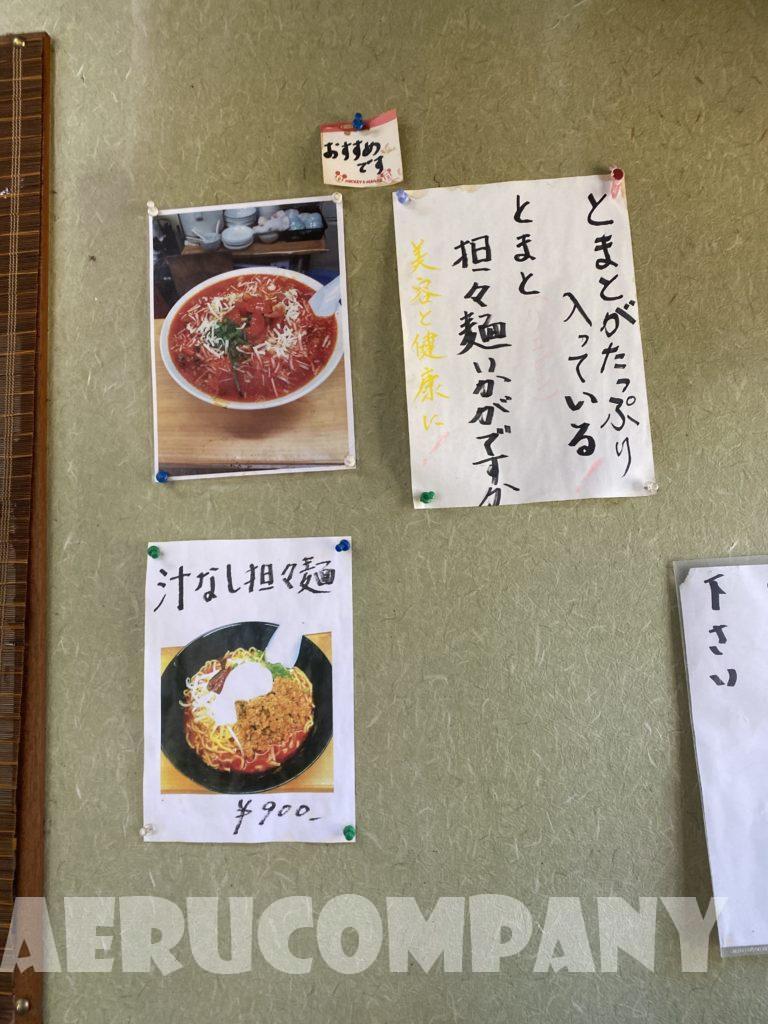 おすすめ
です
とまとがたっぷり
入っている
とまと
担々麺いかがですか
美容と健康に
汁なし担々麺
¥900-
下さい
AERUCOMPANY